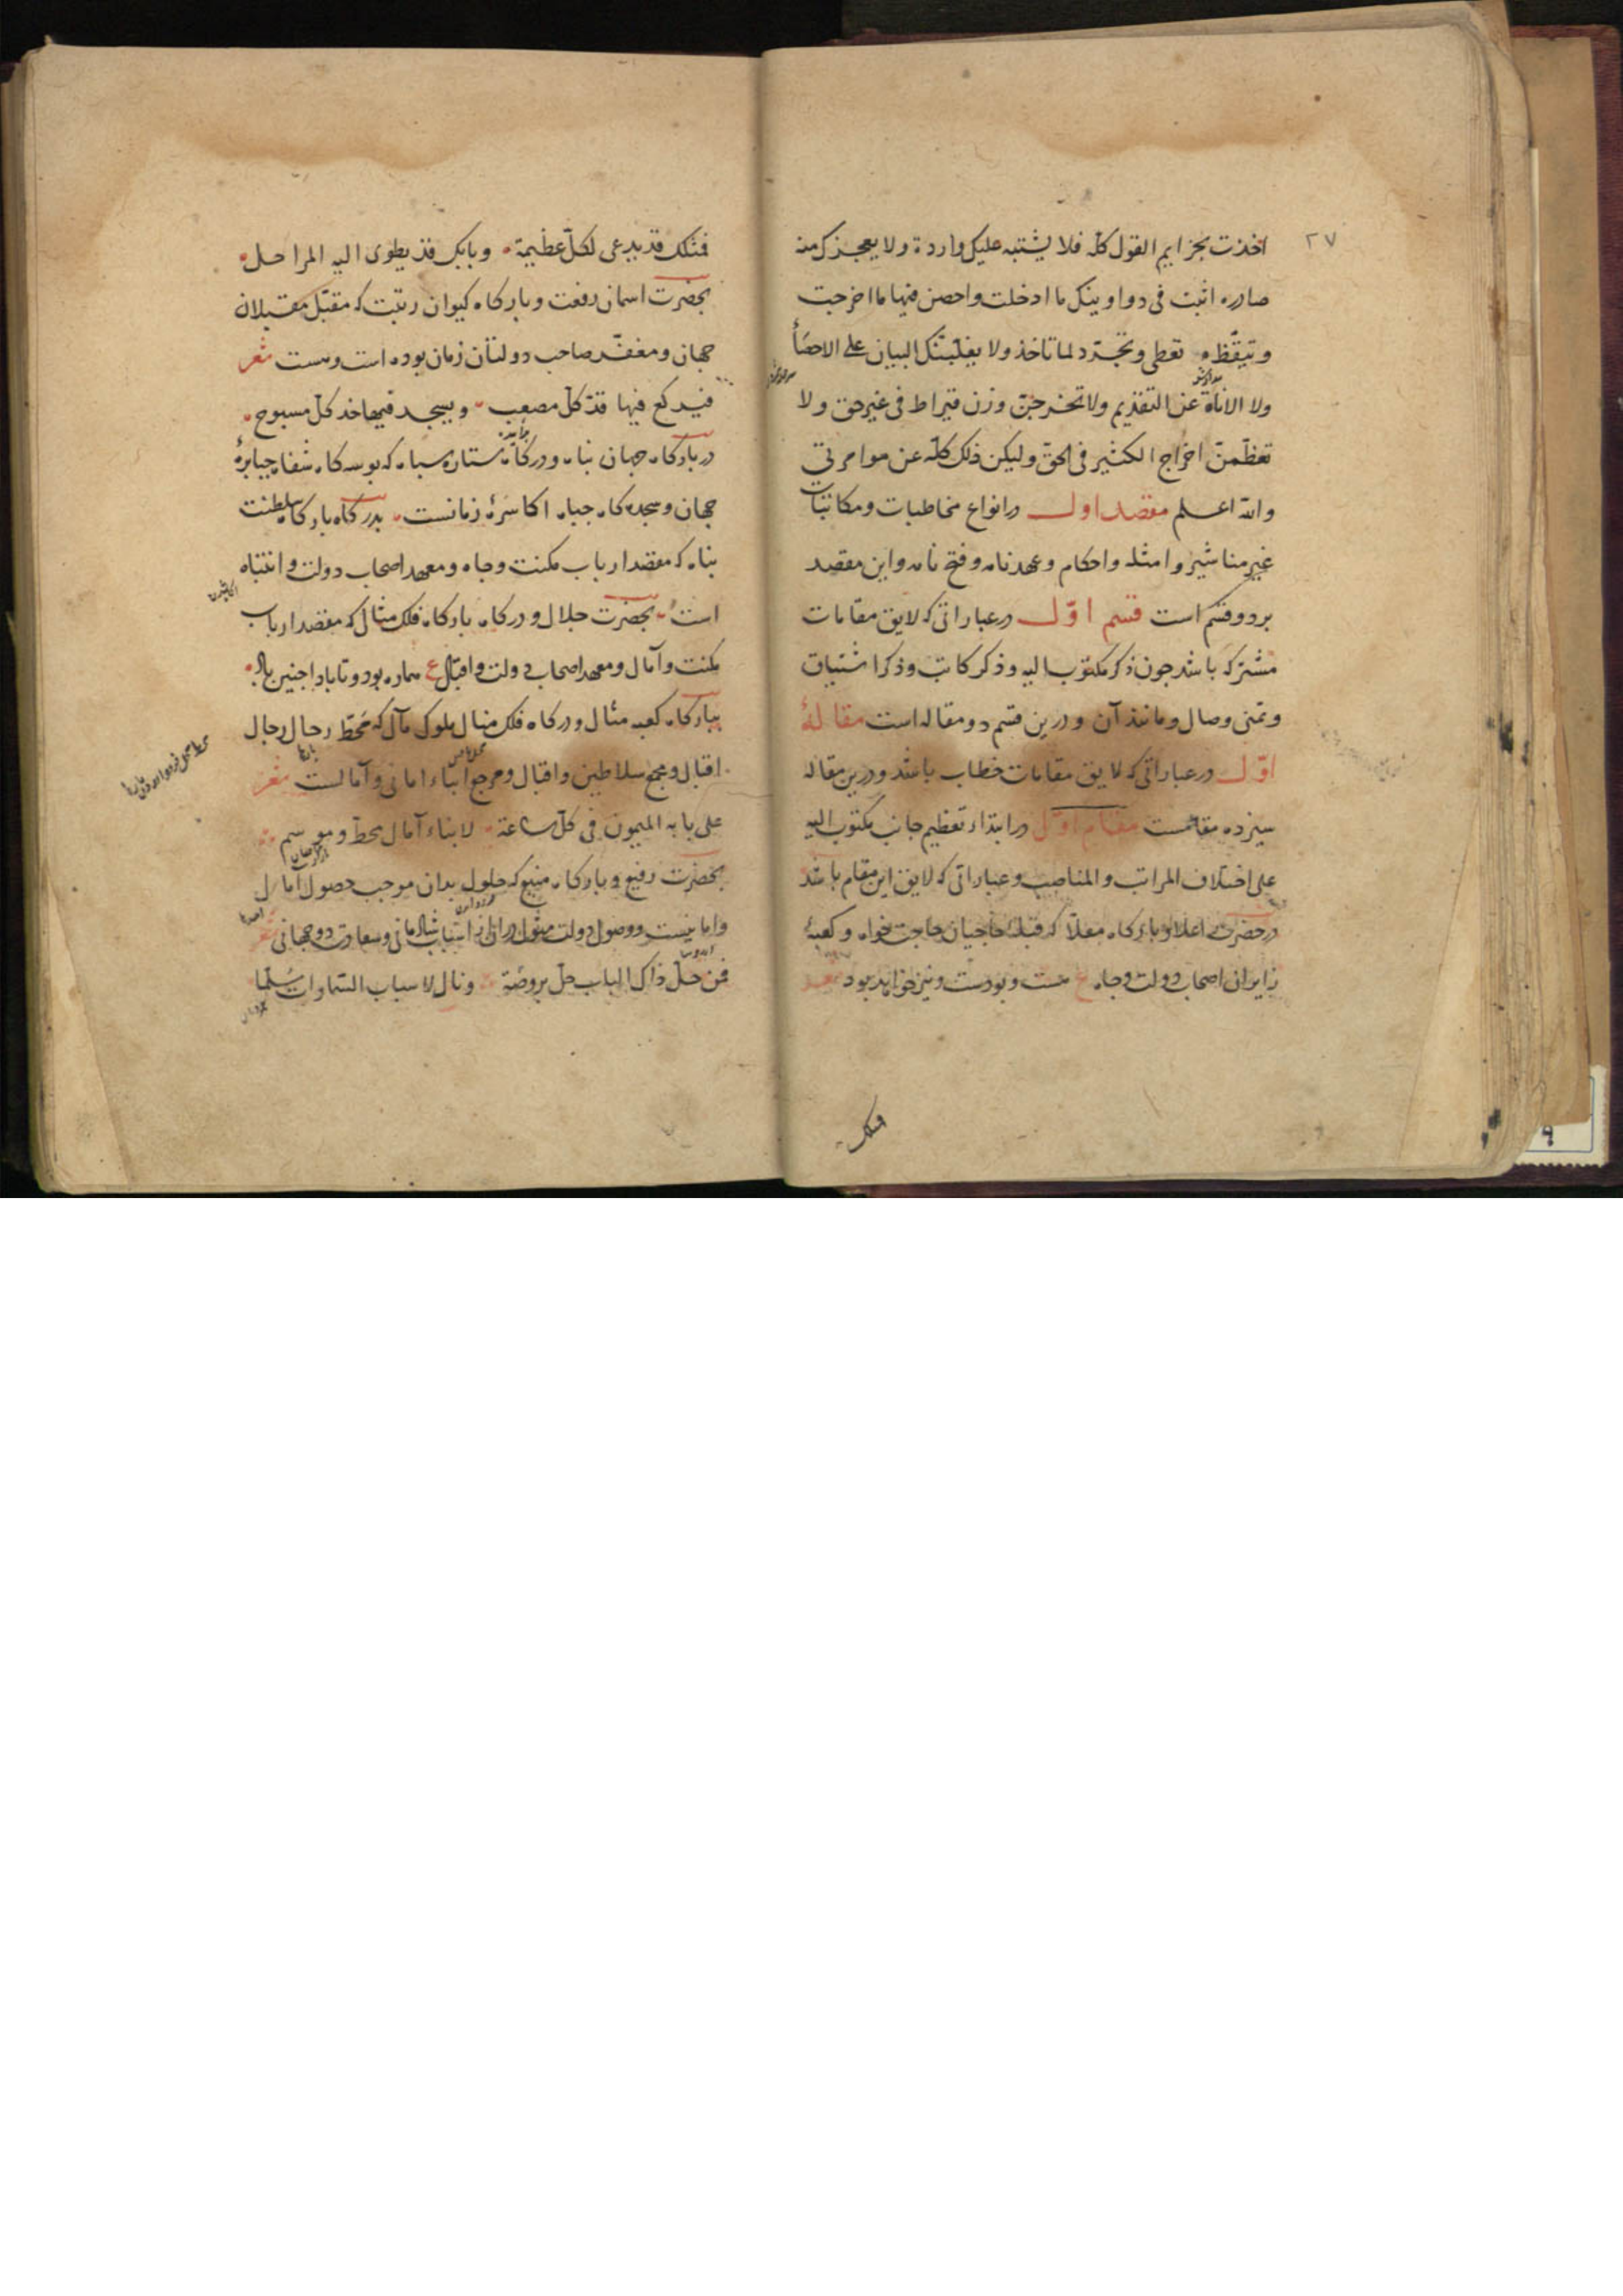 ۲۷
اخذت بخزایم القول کله فلا یشتبه علیک واردة ولا یعجزک منه
صادره اثبت فی دواوینک ما ادخلت واحصن فیها ما اخرجت
وتیقظ تعطی وتجرد لما تاخذ ولا یغلبنک البیان علی الاحصأ
ولا الاناة عن التقدیم ولا تخرجن وزن قیراط فی غیر حق ولا
تعظمن اخراج الکثیر فی الحق ولیکن ذلک کله عن موامرتی
والله اعلم مقصد اول در انواع مخاطبات ومکاتبات
غیر مناشیر وامثله واحکام وعهدنامه وفتح نامه واین مقصد
بر دو قسم است قسم اوّل در عباراتی که لایق مقامات
مشترکه باشد جون ذکر مکتوب الیه وذکر کاتب وذکر اشتیاق
وتمنی وصال ومانند آن ودرین قسم دو مقاله است مقالهٔ
اوّل در عباراتی که لایق مقامات خطاب باشد ودرین مقاله
سیزده مقامست مقام اوّل در ابتداء تعظیم جانب مکتوب الیه
علی اختلاف المراتب والمناصب وعباراتی که لایق این مقام باشد
در حضرت اعلا وبارکاه معلّا که قبلهٔ حاجیان حاجت خواه وکعبهٔ
زایران اصحاب دولت وجاه ع هست وبودست ونیز خواهد بود
فمثلک
فمثلک قد یدعی لکلّ عظیمة وبابک قد یطوی الیه المراحل
بحضرت اسمان رفعت وبارکاه کیوان رتبت که مقبّل مقبلان
جهان ومعفّر صاحب دولتان زمان بوده است وهست شعر
فیرکع فیها قدّ کلّ مصعب ویسجد فیها خد کلّ مسبوح
در بارکاه جهان پناه ودرکاه ستاره سپاه که بوسه کاه شفاه جبابرهٔ
جهان وسجده کاه جباه اکاسرهٔ زمانست بدرکاه بارکاه سلطنت
پناه که مقصد ارباب مکنت وجاه ومعهد اصحاب دولت وانتباه
است بحضرت جلال ودرکاه بارکاه فلک مثال که مقصد ارباب
مکنت وآمال ومعهد اصحاب دولت واقبال ع هماره بود وتا باد اجنین باد
ببارکاه کعبه مثال ودرکاه فلک منال ملوک مآل که محَطّ رحال رجال
اقبال ومجمع سلاطین واقبال ومرجع ابناء امانی وآمالست شعر
علی بابه المیمون فی کلّ ساعة لابناء آمال محطّ وموسم
بحضرت رفیع وبارکاه منیع که حلول بدان موجب حصول امال
وامانیست ووصول دولت مثول در ان از اسباب شادمانی وسعادت دوجهانی شعر
فمن حلّ ذاک الباب حلّ بروضة ونال لاسباب السّماوات سُلّما